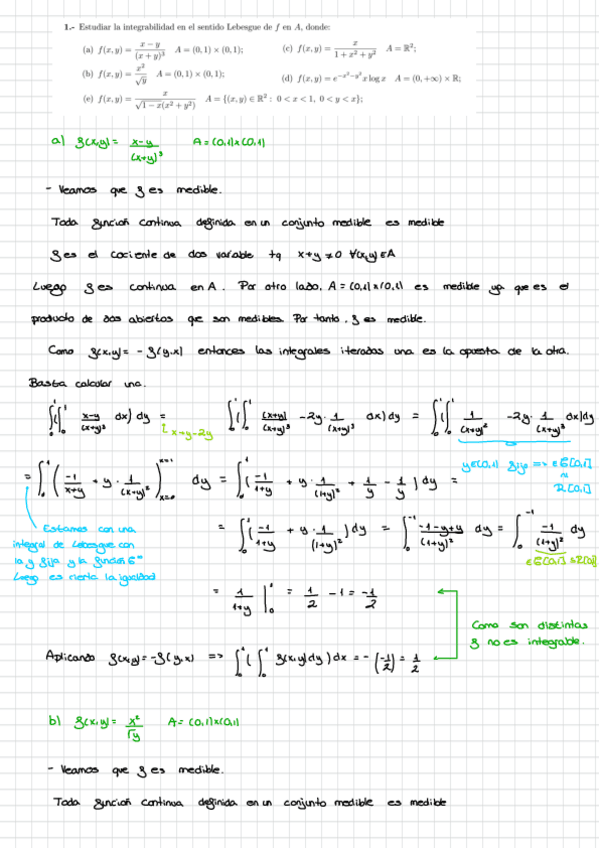 1.- Estudiar la integrabilidad en el sentido Lebesgue de f en A, donde:
(a) f(x, y) = (x − y)/(x + y)³ A = (0, 1) × (0, 1);
(c) f(x, y) = x/(1 + x² + y²) A = ℝ²;
(b) f(x, y) = x²/√y A = (0, 1) × (0, 1);
(d) f(x, y) = e^(−x²−y²) x log x A = (0, +∞) × ℝ;
(e) f(x, y) = x/(√(1 − x)(x² + y²)) A = {(x, y) ∈ ℝ² : 0 < x < 1, 0 < y < x};
a) f(x,y) = (x-y)/(x+y)³ A = (0,1)x(0,1)
- Veamos que f es medible.
Toda función continua definida en un conjunto medible es medible
f es el cociente de dos variable tq x+y ≠ 0 ∀(x,y) ∈ A
Luego f es continua en A. Por otro lado, A = (0,1)x(0,1) es medible ya que es el
producto de dos abiertos que son medibles. Por tanto, f es medible.
Como f(x,y) = - f(y,x) entonces las integrales iteradas una es la opuesta de la otra.
Basta calcular una.
∫₀¹(∫₀¹ (x-y)/(x+y)³ dx) dy = ∫₀¹(∫₀¹ (x+y)/(x+y)³ - 2y · 1/(x+y)³ dx) dy = ∫₀¹(∫₀¹ 1/(x+y)² - 2y · 1/(x+y)³ dx) dy
x+y-2y
= ∫₀¹ (-1/(x+y) + y · 1/(x+y)²)ₓ₌₀ˣ⁼¹ dy = ∫₀¹ (-1/(1+y) + y · 1/(1+y)² + 1/y - 1/y) dy =
y∈(0,1) fijo => ∈ C[0,1]
∩
R[0,1]
Estamos con una
integral de Lebesgue con
la y fija y la función C
Luego es cierta la igualdad
= ∫₀¹ (-1/(1+y) + y · 1/(1+y)²) dy = ∫₀¹ (-1-y+y)/(1+y)² dy = ∫₀¹ -1/(1+y)² dy
∈ C[0,1] ⊂ R[0,1]
= 1/(1+y) |₀¹ = 1/2 - 1 = -1/2
Como son distintas
f no es integrable.
Aplicando f(x,y) = -f(y,x) => ∫₀¹(∫₀¹ f(x,y)dy) dx = -(-1/2) = 1/2
b) f(x,y) = x²/√y A = (0,1)x(0,1)
- Veamos que f es medible.
Toda función continua definida en un conjunto medible es medible